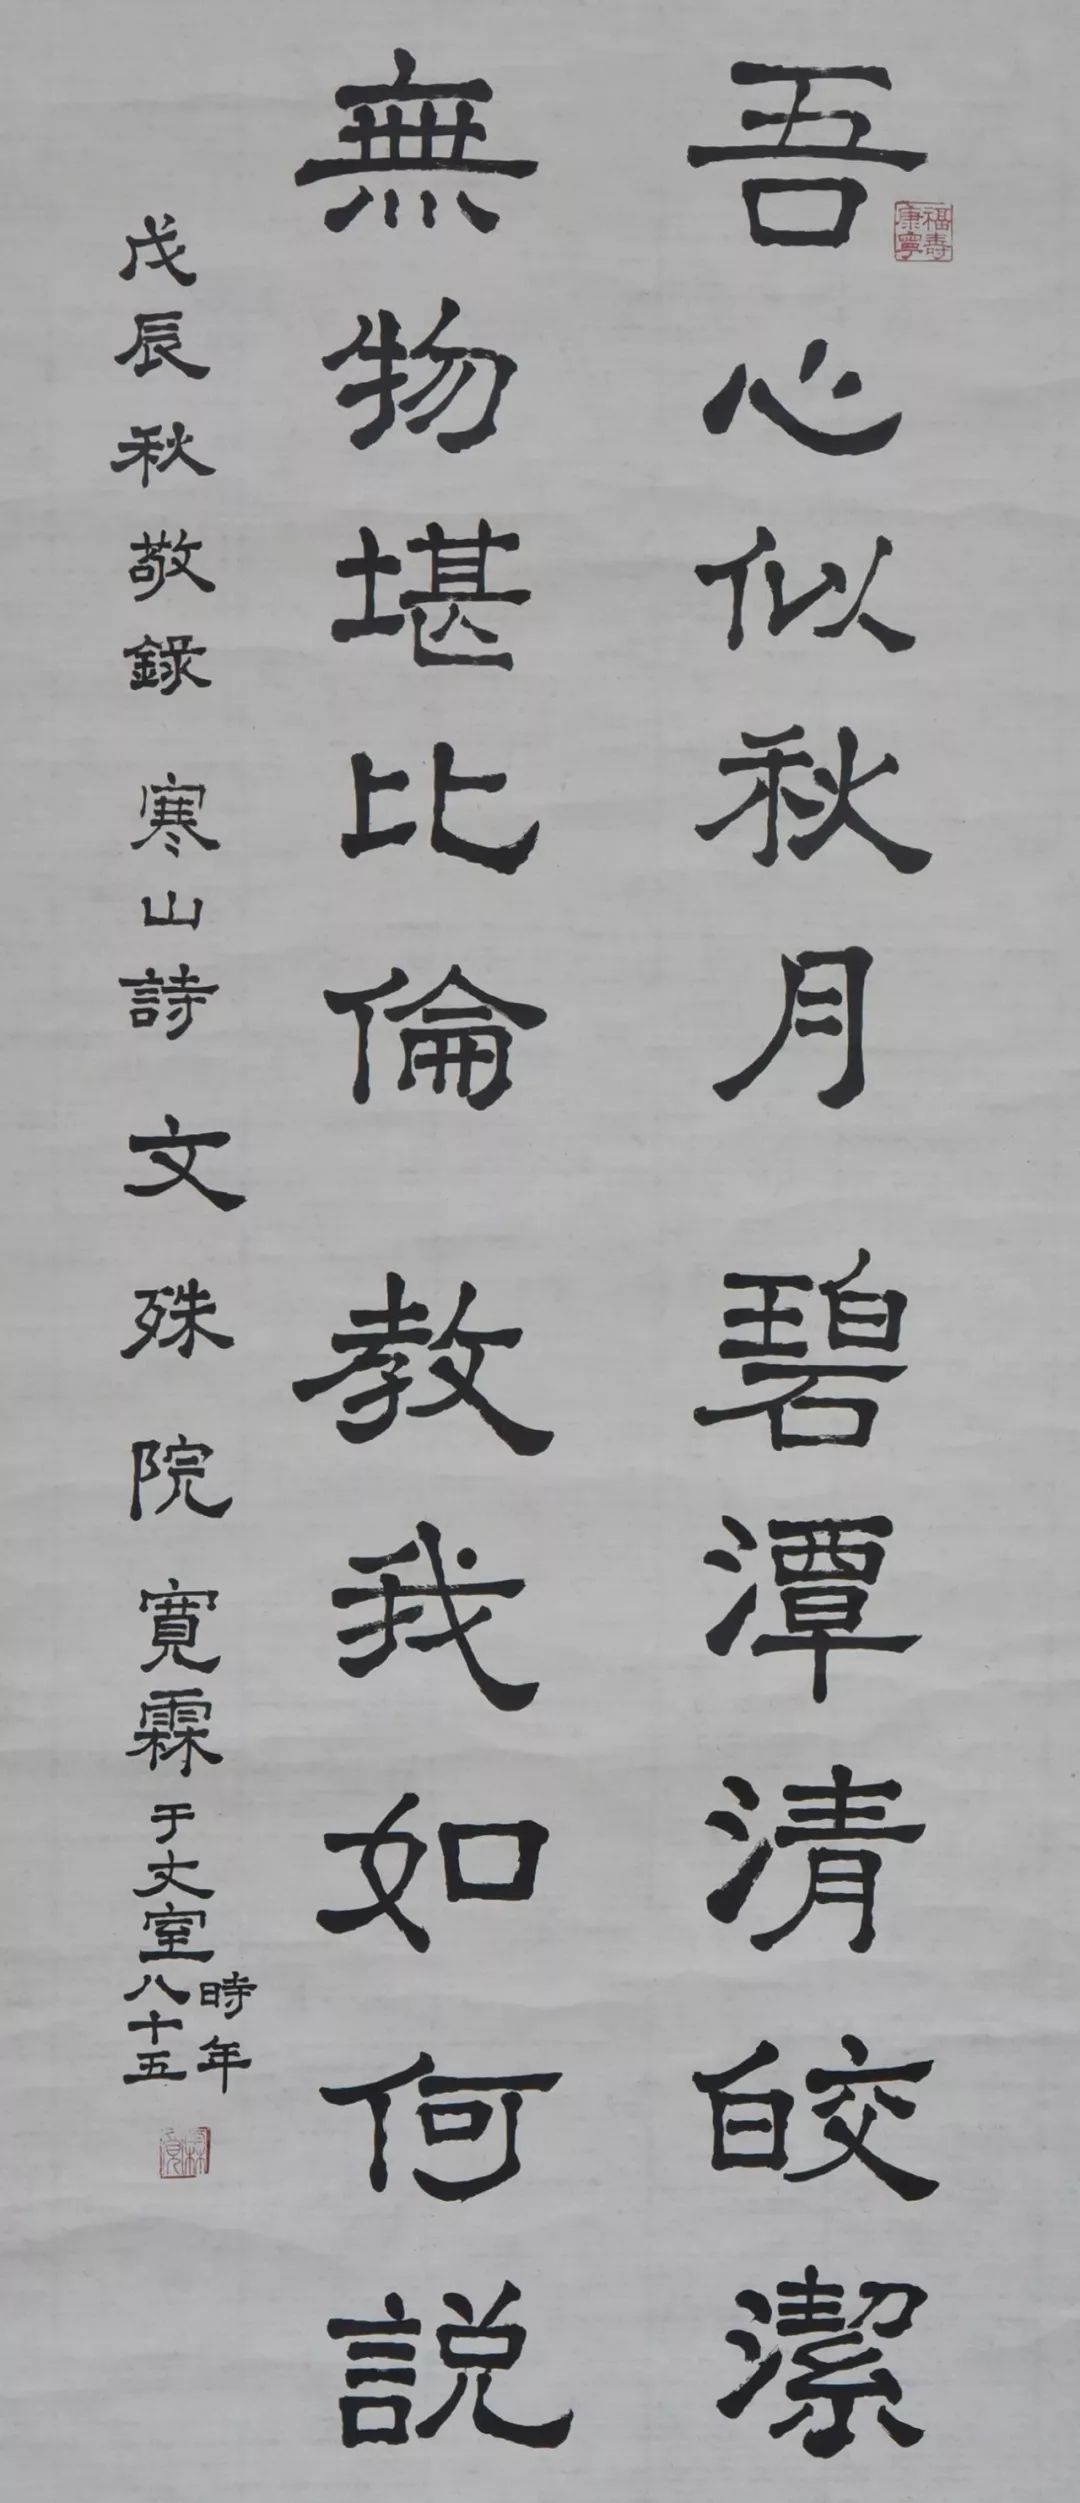 吾心似秋月碧潭清皎潔
無物堪比倫教我如何説
戊辰秋敬錄寒山詩文殊院寬霖于丈室時年八十五
福壽康寧
寬霖